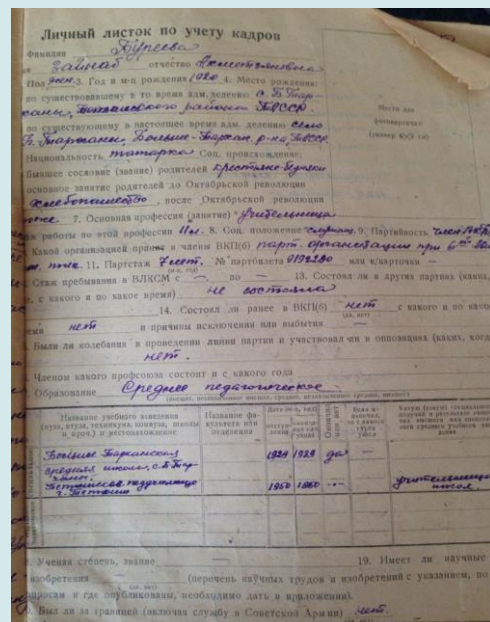 Личный листок по учету кадров
Фамилия Бурсева
Зайнаб отчество Ахметзяновна
Пол жен. 3. Год и м-ц рождения 1920 4. Место рождения:
по существовавшему в то время адм. делению с. Б. Тар-
ханы, района ТАССР.
по существующему в настоящее время адм. делению село
Б. Тарханы, Больше-Тархан. р-на, ТАССР.
Национальность татарка Соц. происхождение:
Бывшее сословие (звание) родителей крестьяне-бедняки
основное занятие родителей до Октябрьской революции
хлебопашество, после Октябрьской революции
7. Основная профессия (занятие) учительница
работы по этой профессии 11 л. 8. Соц. положение служащ. 9. Партийность член
Какой организацией принят в члены ВКП(б) парт. организации при
11. Партстаж 7 лет. № партбилета 9192280 или к/карточки —
(м-ц, год)
Стаж пребывания в ВЛКСМ с — по — 13. Состоял ли в других партиях (каких,
с какого и по какое время) не состояла
14. Состоял ли ранее в ВКП(б) нет с какого и по какое
(да, нет)
время нет и причины исключения или выбытия —
Были ли колебания в проведении линии партии и участвовал ли в оппозициях (каких, когда)
нет.
Членом какого профсоюза состоит и с какого года
Образование Среднее педагогическое
Название учебного заведения
(вуза, втуза, техникума, комвуза, школы
и проч.) и местонахождение
Название фа-
культета или
отделения
Больше Тарханская
средняя школа, с. Б. Тар-
ханы. 1929 да —
Тетюшское педучилище
г. Тетюши 1950 учительница
Ученая степень, звание 19. Имеет ли научные
изобретения (перечень научных трудов и изобретений с указанием, по
вопросам и где опубликованы, необходимо дать в приложении).
(да, нет)
Был ли за границей (включая службу в Советской Армии) нет.